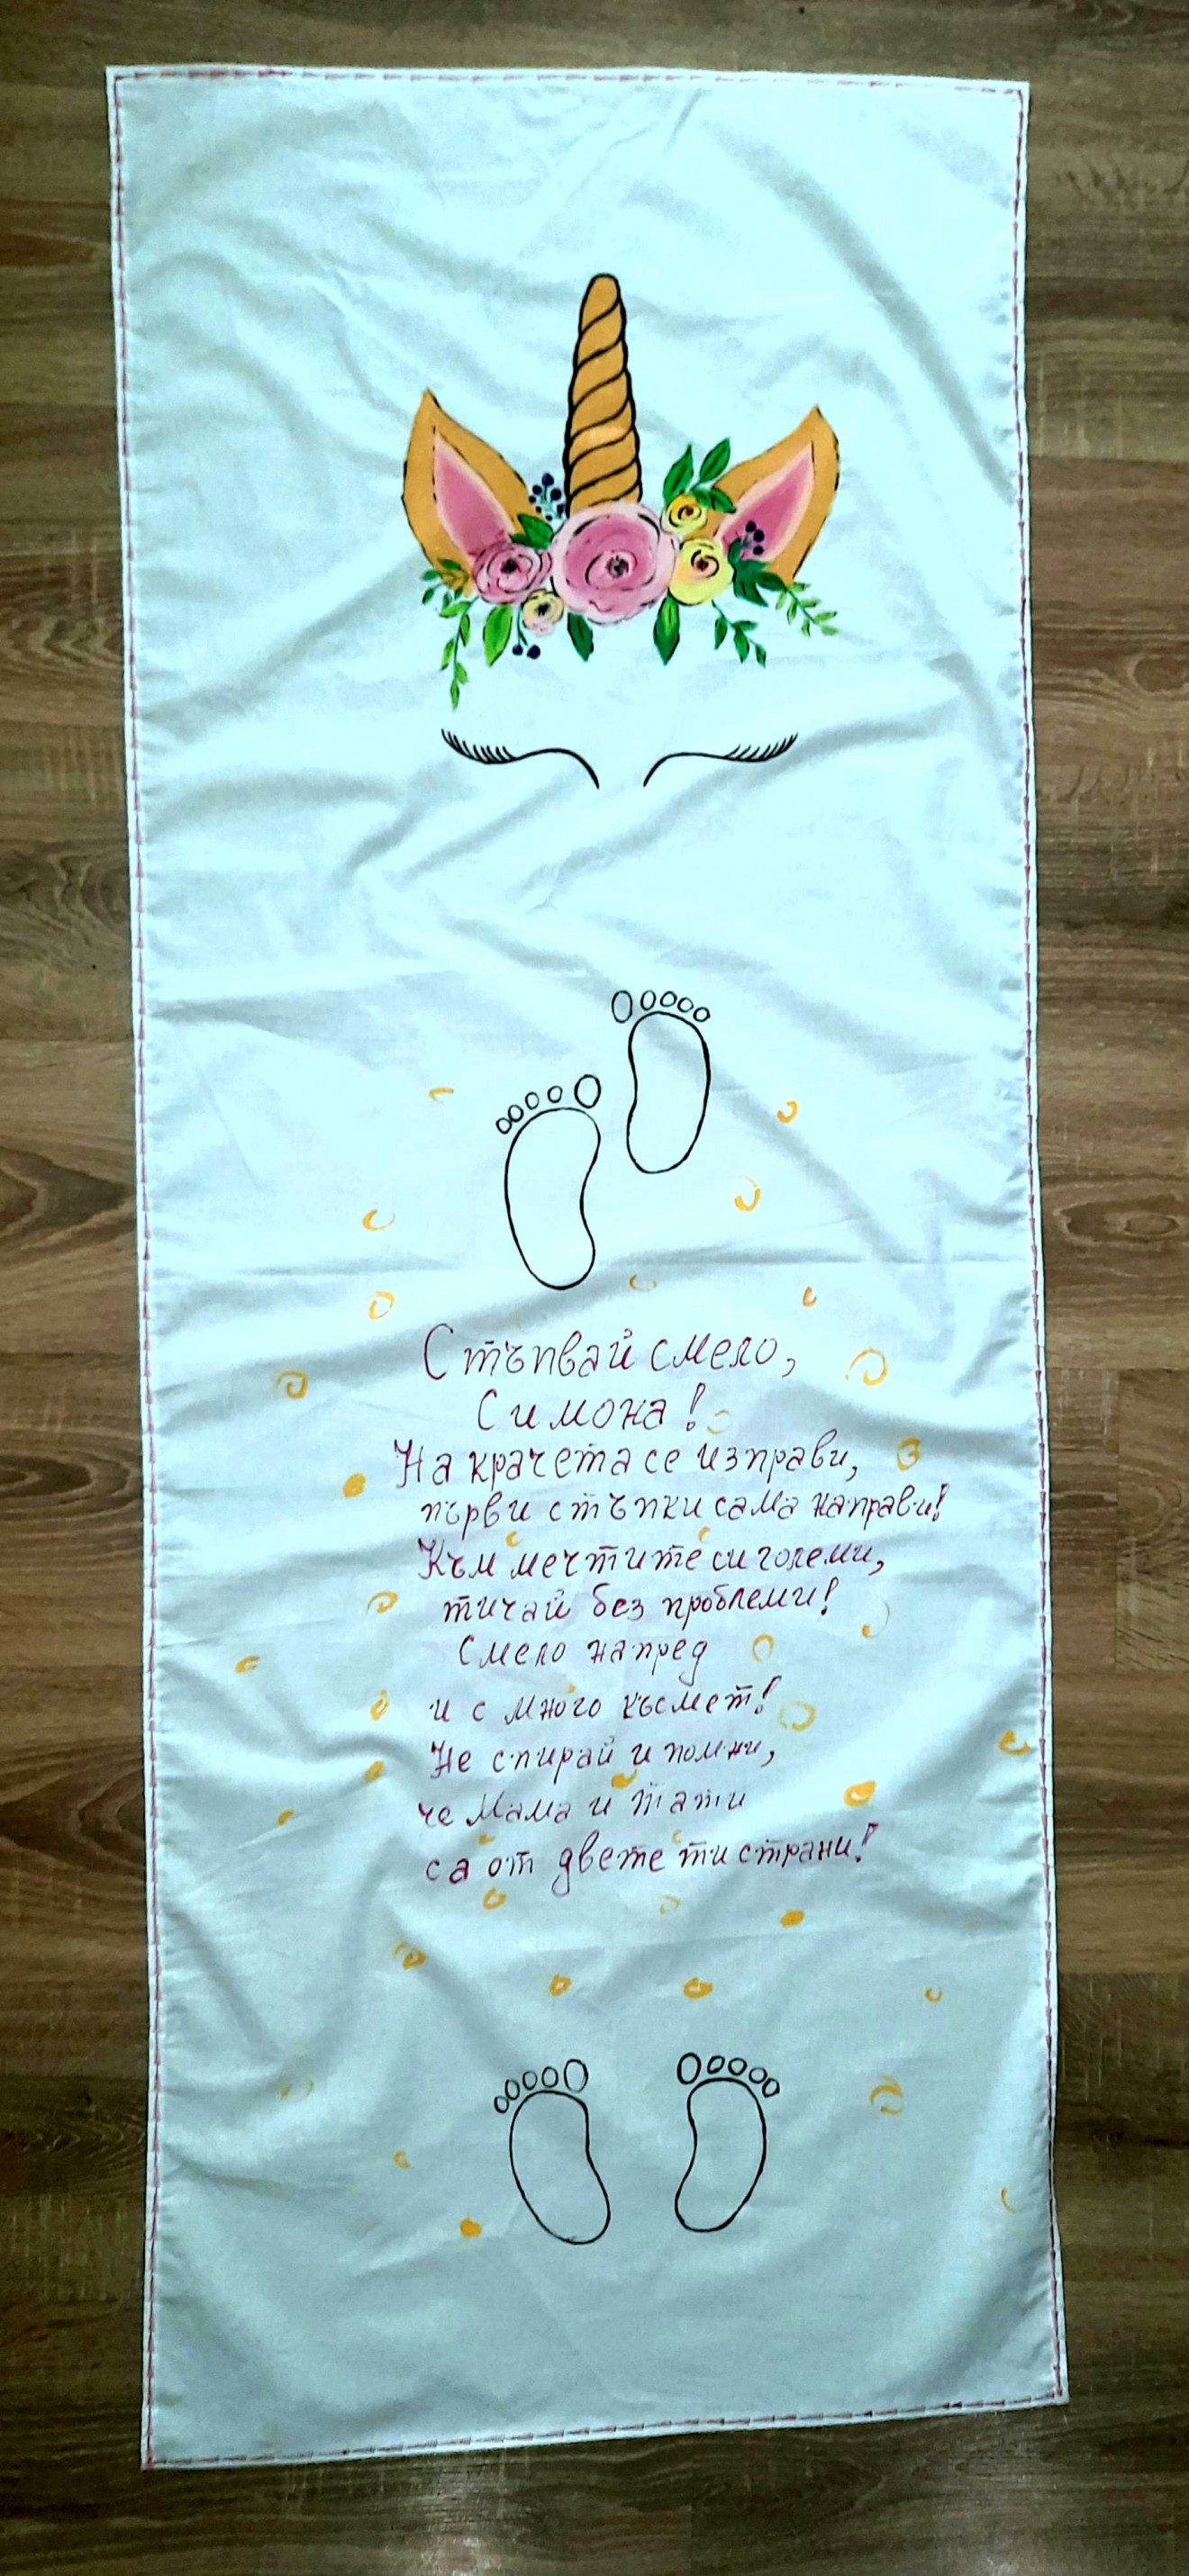 Стъпвай смело,
Симона!
На крачета се изправи,
първи стъпки сама направи!
Към мечтите си големи,
тичай без проблеми!
Смело напред
и с много късмет!
Не спирай и помни,
че Мама и тати
са от двете ти страни!